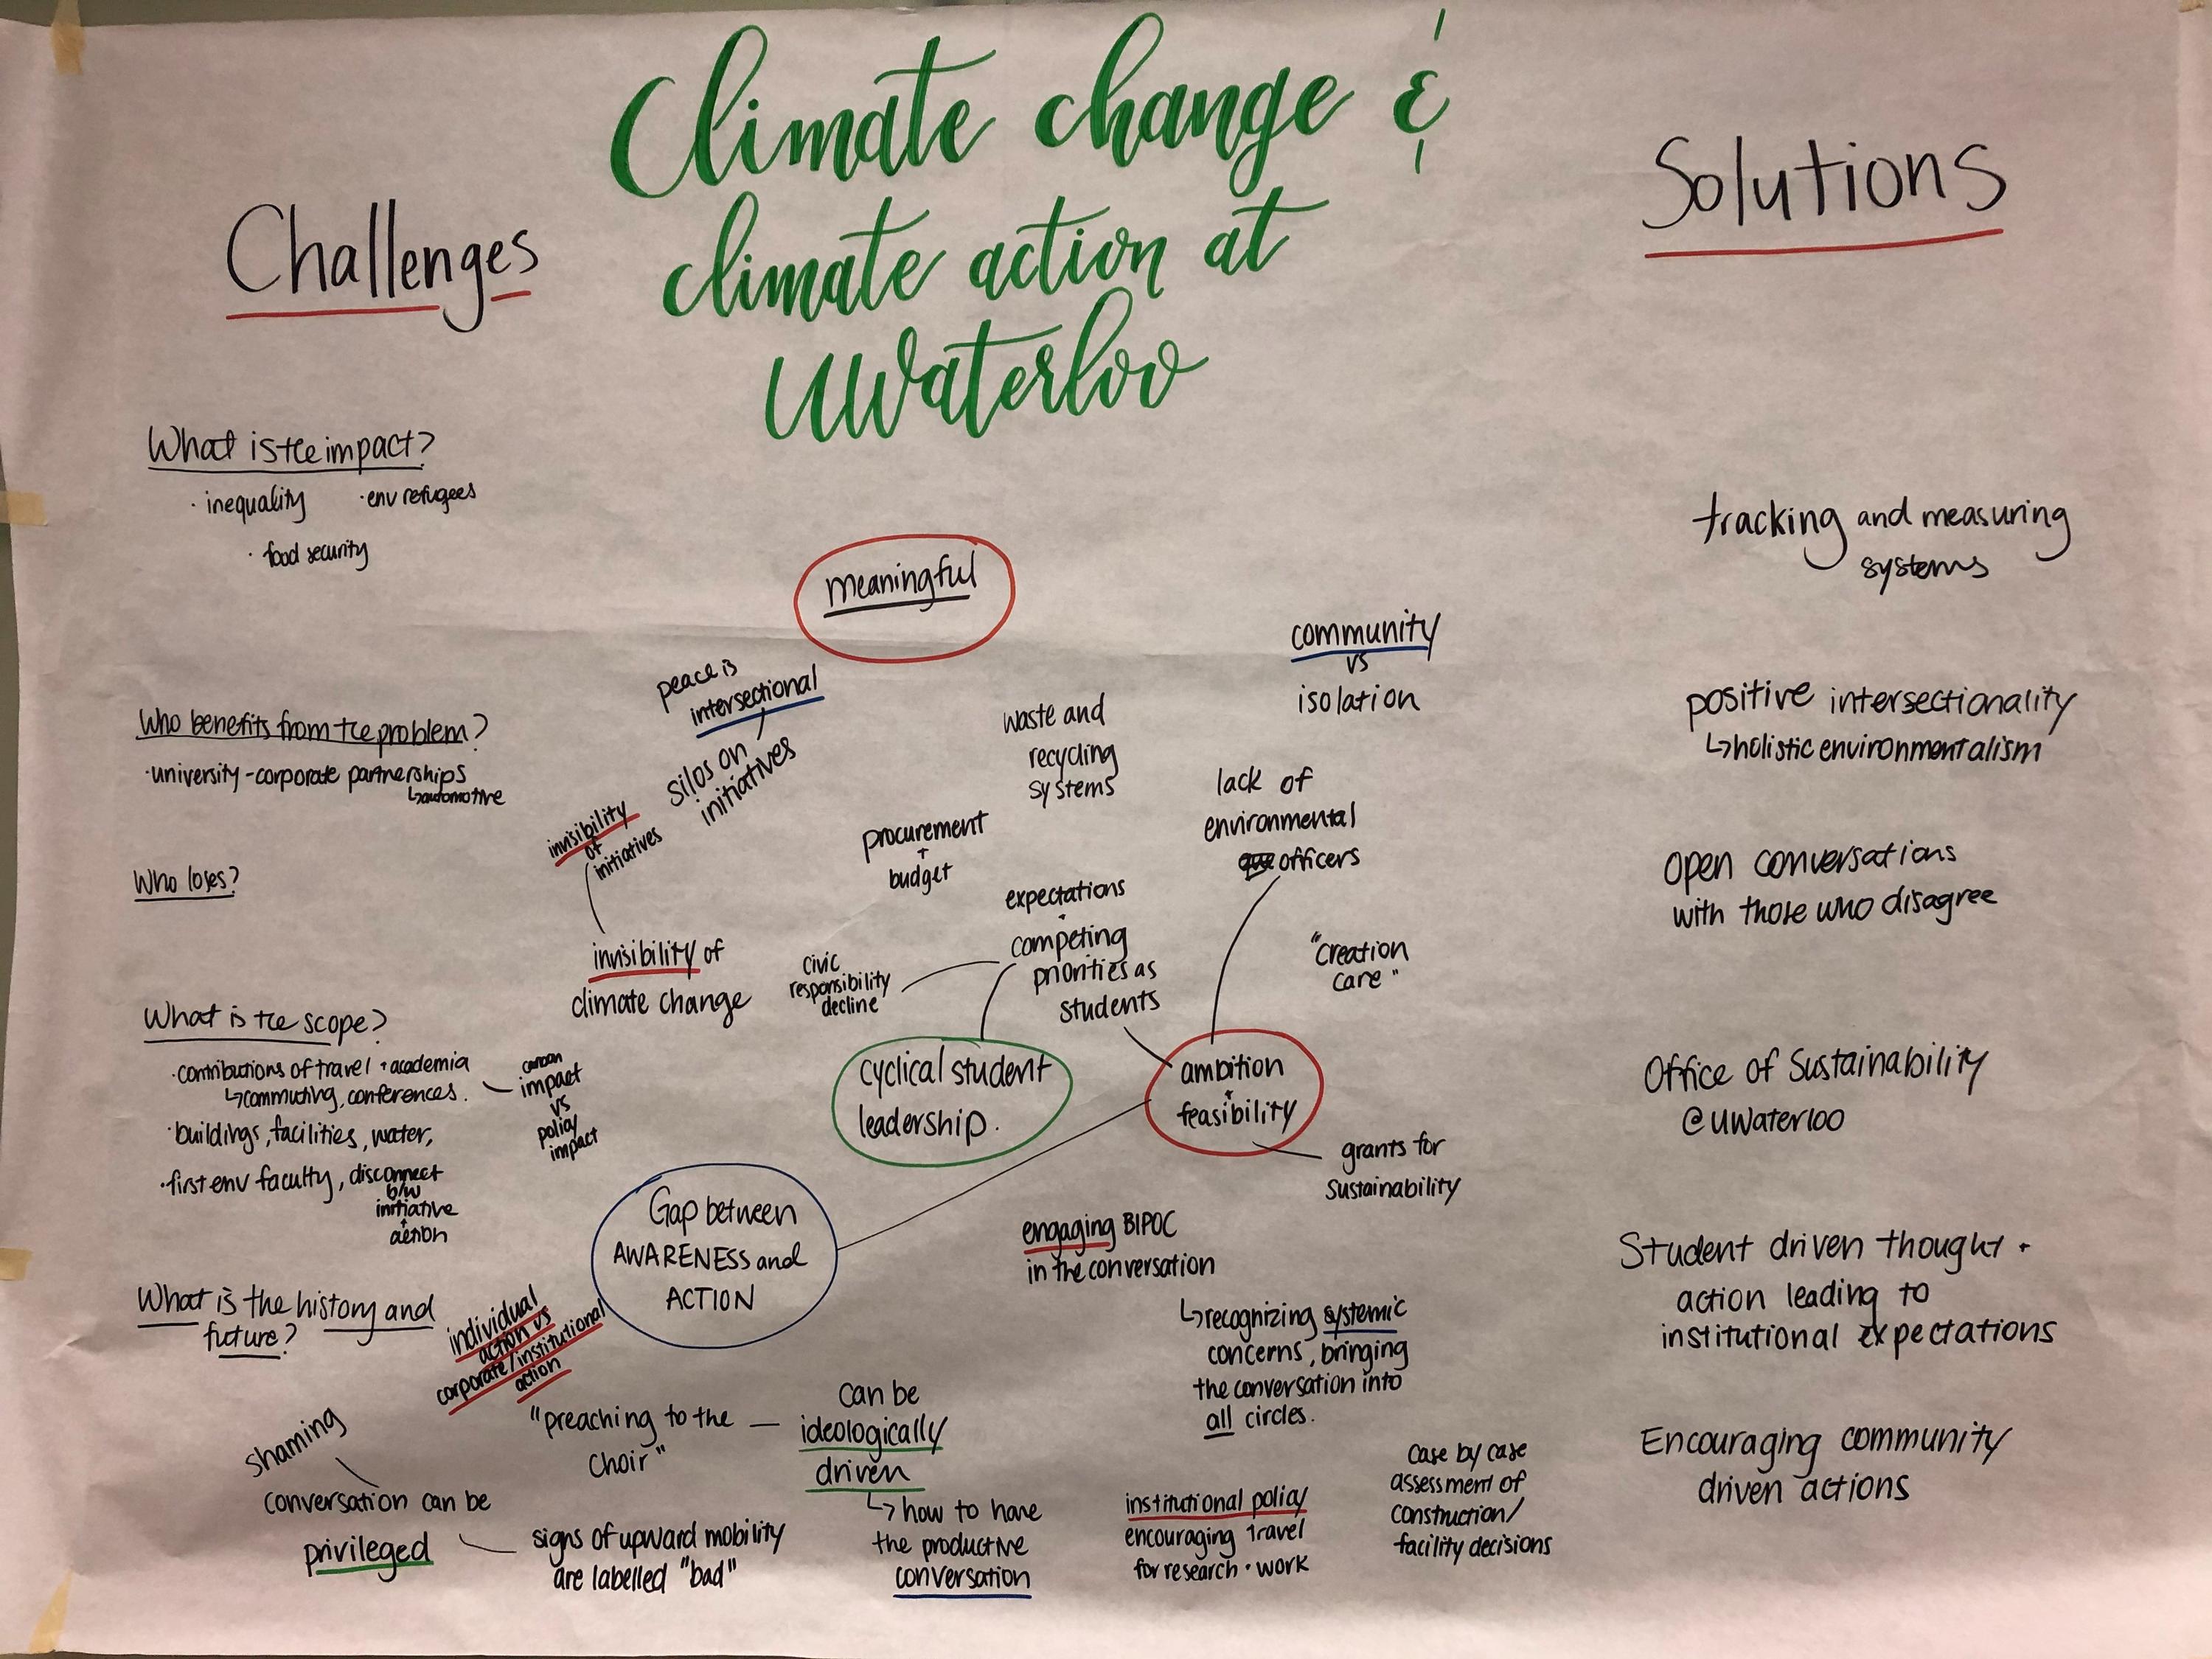 Climate change &
climate action at
UWaterloo
Challenges
What is the impact?
· inequality · env refugees
· food security
Who benefits from the problem?
· university-corporate partnerships
↳ automotive
Who loses?
What is the scope?
· contributions of travel + academia
↳ commuting, conferences.
carbon
impact
vs
policy
impact
· buildings, facilities, water,
· first env faculty, disconnect
b/w
initiative
+
action
What is the history and
future?
individual
action vs
corporate/institutional
action
shaming
conversation can be
privileged
signs of upward mobility
are labelled "bad"
"preaching to the
choir"
can be
ideologically
driven
↳ how to have
the productive
conversation
meaningful
peace is
intersectional
silos on
initiatives
invisibility
of
initiatives
invisibility of
climate change
waste and
recycling
systems
procurement
+
budget
community
vs
isolation
lack of
environmental
officers
expectations
+
competing
priorities as
students
civic
responsibility
decline
"creation
care"
cyclical student
leadership.
ambition
+
feasibility
grants for
sustainability
Gap between
AWARENESS and
ACTION
engaging BIPOC
in the conversation
↳ recognizing systemic
concerns, bringing
the conversation into
all circles.
institutional policy
encouraging travel
for research + work
case by case
assessment of
construction/
facility decisions
Solutions
tracking and measuring
systems
positive intersectionality
↳ holistic environmentalism
open conversations
with those who disagree
Office of Sustainability
@UWaterloo
Student driven thought +
action leading to
institutional expectations
Encouraging community
driven actions